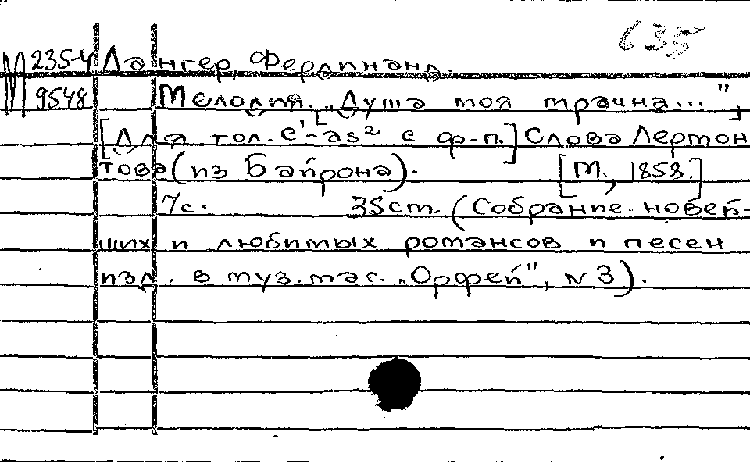 635
М 235-4 Лангер, Фердинанд.
9548 Мелодия. "Душа моя мрачна..."
[Для гол. e'-as² с ф-п.] Слова Лермон
това (из Байрона). [М., 1858.]
7с. 35ст. (Собрание новей-
ших и любимых романсов и песен
изд. в муз. маг. "Орфей", N 3).